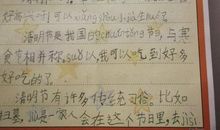 好高兴,可以xiǎng shòu jià
清明节是我国的chuántǒng节,与其
食节相并称,suǒ以我可以吃到好多
好吃的了。
清明节有许多传统习俗。比如
扫墓,      家人会在这个节日里,去jìsì